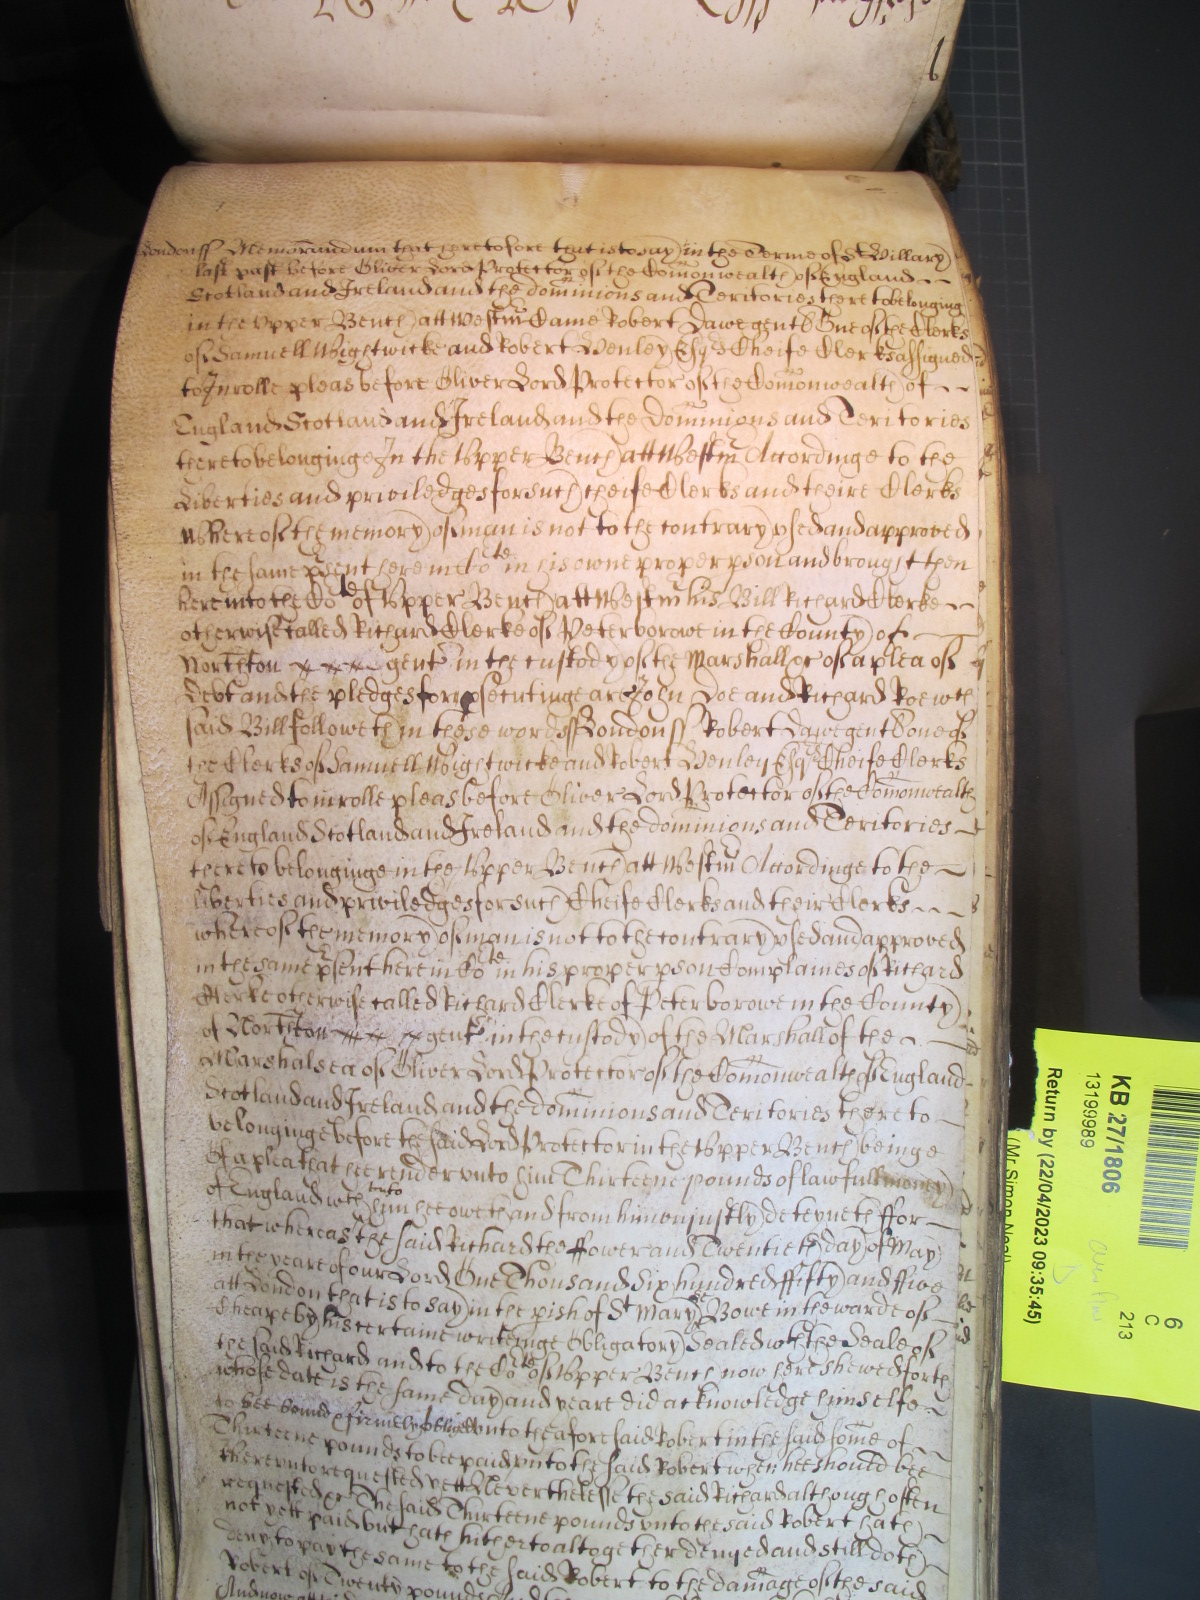 Londonss Memorandum that heretofore that is to say in the Terme of St Hillary
last past before Oliver Lord Protector of the Comonwealth of England
Scotland and Ireland and the dominions and Teritories thereto belonging
in the Upper Bench att Westm Came Robert Dawe gent One of the Clerks
of Samuell Wightwicke and Robert Henley Esqs Cheife Clerks assigned
to Inrolle pleas before Oliver Lord Protector of the Comonwealth of
England Scotland and Ireland and the Dominions and Teritories
thereto belonginge In the Upper Bench att Westm Accordinge to the
Liberties and priviledges for such cheife Clerks and theire Clerks
whereof the memory of man is not to the contrary used and approved
in the same psent here in Co te in his owne proper pson and brought then
here into the Co te of Upper Bench att Westm his Bill Richard Clerke
otherwise called Richard Clerke of Peterborowe in the County of
Northton gent in the custody of the Marshall &c of a plea of
Debt and the pledges for psecutinge are John Doe and Richard Roe wch
said Bill followeth in these words ss Londonss Robert Dawe gent One of
the Clerks of Samuell Wightwicke and Robert Henley Esqs Cheife Clerks
Assigned to inrolle pleas before Oliver Lord Protector of the Comonwealth
of England Scotland and Ireland and the dominions and Teritories
thereto belonginge in the Upper Bench att Westm Accordinge to the
liberties and priviledges for such Cheife Clerks and their Clerks
whereof the memory of man is not to the contrary used and approved
in the same psent here in Co te in his proper pson Complaines of Richard
Clerke otherwise called Richard Clerke of Peterborowe in the County
of Northton gent in the custody of the Marshall of the
Marshalsea of Oliver Lord Protector of the Comonwealth of England
Scotland and Ireland and the dominions and Teritories thereto
belonginge before the said Lord Protector in the Upper Bench beinge
Of a plea that hee render unto him Thirteene pounds of lawfull money
of England wch unto him hee oweth and from him unjustly deteyneth ffor
that whereas the said Richard the ffower and Twentieth day of May
in the yeare of our Lord One Thousand Six hundred ffifty and ffive
att London that is to say in the pish of St Mary le Bowe in the warde of
Cheape by his certaine writeinge Obligatory Sealed wth the Seale of
the said Richard and to the Co te of Upper Bench now here shewed forth
whose date is the same day and yeare did acknowledge himselfe
to bee bound & firmely obliged unto the aforesaid Robert in the said some of
Thirteene pounds to bee paid unto the said Robert when hee should bee
thereunto requested yett Neverthelesse the said Richard although often
requested &c The said Thirteene pounds unto the said Robert hath
not yett paid but hath hitherto altogether denyed and still doth
deny to pay the same to the said Robert to the damage of the said
Robert of Twenty pounds
KB 27/1806
13199989
Return by (22/04/2023 09:35:45)
6
C
213
(Mr Simon Neal)